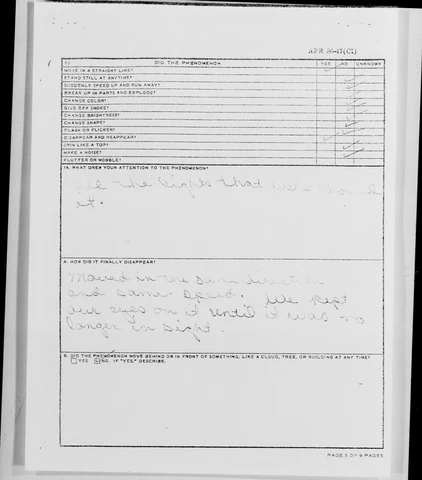 AFR 80-17(C1)
13. DID THE PHENOMENON YES NO UNKNOWN
MOVE IN A STRAIGHT LINE?
STAND STILL AT ANYTIME?
SUDDENLY SPEED UP AND RUN AWAY?
BREAK UP IN PARTS AND EXPLODE?
CHANGE COLOR?
GIVE OFF SMOKE?
CHANGE BRIGHTNESS?
CHANGE SHAPE?
FLASH OR FLICKER?
DISAPPEAR AND REAPPEAR?
SPIN LIKE A TOP?
MAKE A NOISE?
FLUTTER OR WOBBLE?
14. WHAT DREW YOUR ATTENTION TO THE PHENOMENON?
all the lights that were
it.
A. HOW DID IT FINALLY DISAPPEAR?
Moved in the same direction
and same speed. We kept
our eyes on it until it was no
longer in sight.
B. DID THE PHENOMENON MOVE BEHIND OR IN FRONT OF SOMETHING, LIKE A CLOUD, TREE, OR BUILDING AT ANY TIME?
YES NO. IF "YES," DESCRIBE.
PAGE 5 OF 9 PAGES